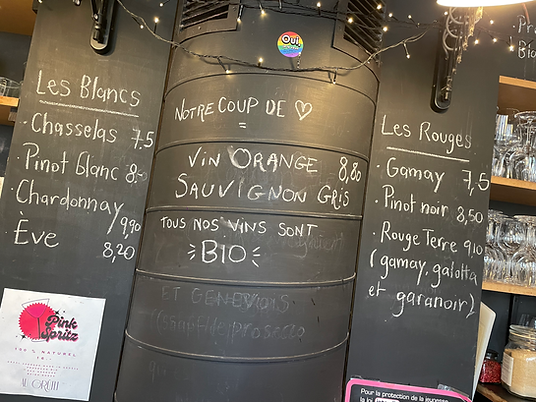 Les Blancs
· Chasselas 7.5
· Pinot blanc 8.-
· Chardonnay 9,90
· Ève 8,20
Pink
Spritz
100% NATUREL
Oui
NOTRE COUP DE ♡
=
VIN ORANGE 8,80
SAUVIGNON GRIS
TOUS NOS VINS SONT
BIO
ET GENEVOIS
Les Rouges
· Gamay 7,5
· Pinot noir 8,50
· Rouge Terre 9,10
(gamay, galotta
et garanoir)
Pour la protection de la jeunesse
la loi